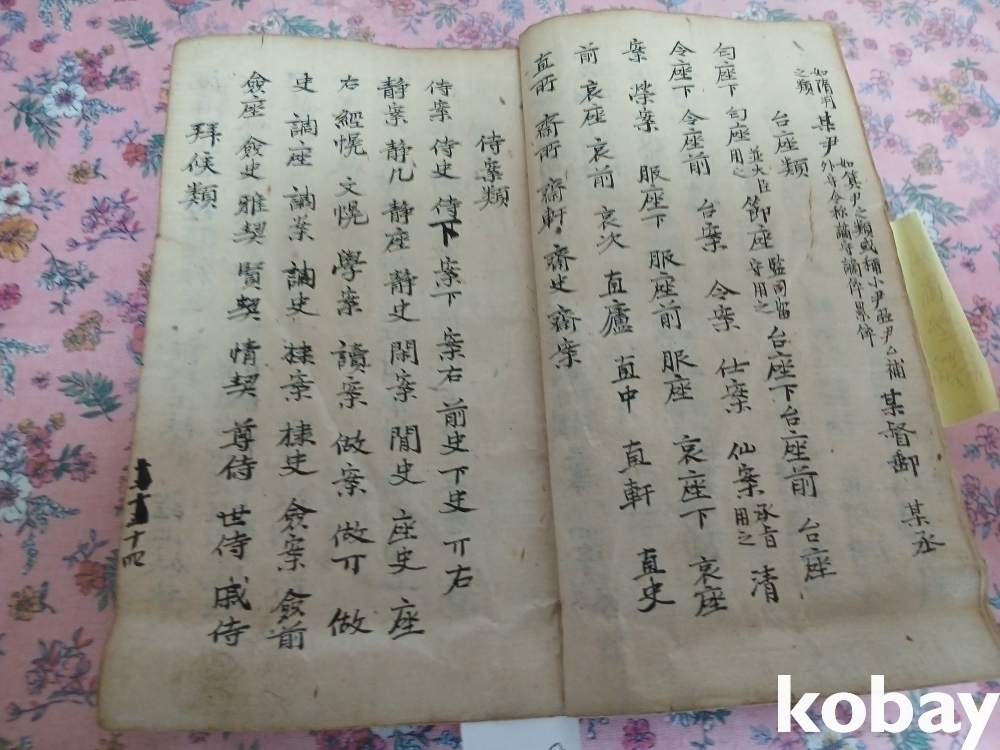 如隋州之類 某尹 如箕尹之類或稱小尹亞尹 某督郵 某丞
台座類
台座下 台座前 台座
匀座下 匀座 並大臣用之 節座 監司留守用之
令座下 令座前 台案 令案 仕案 仙案 承旨用之 清
案 榮案 服座下 服座前 服座 哀座下 哀座
前 哀座 哀前 哀次 直廬 直中 直軒 直史
直所 齋所 齋軒 齋史 齋案
侍案類
侍案 侍史 侍下 案下 案右 前史 下史 丌右
静案 静几 静座 静史 閑案 閒史 座史 座
右 經幌 文幌 學案 讀案 做案 做丌 做
史 調座 調案 調史 棣案 棣史 僉案 僉前
僉座 僉史 雅契 賢契 情契 尊侍 世侍 戚侍
拜候類
十四
kobay